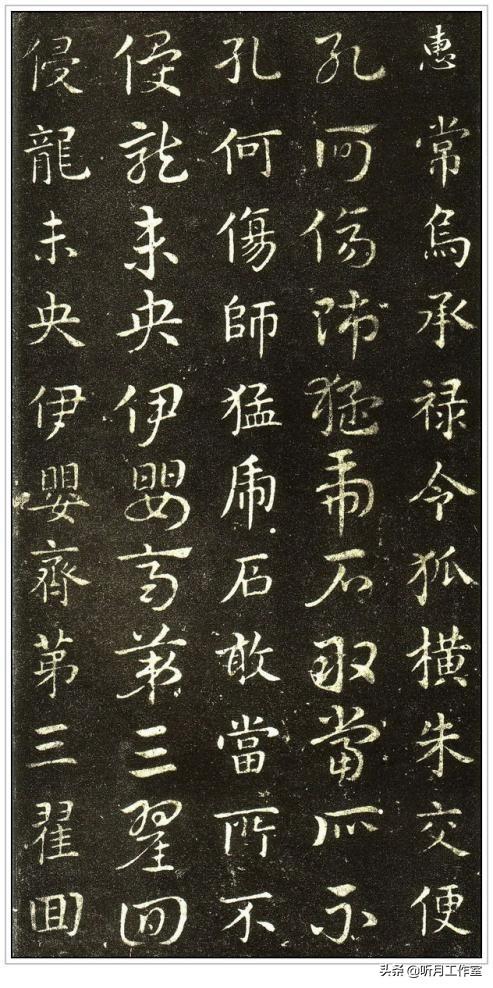 惠常烏承禄令狐橫朱交便
孔何傷師猛虎石敢當所不
孔何傷師猛虎石敢當所不
侵龍未央伊嬰齊第三翟回
侵龍未央伊嬰齊第三翟回
头条 @听月工作室